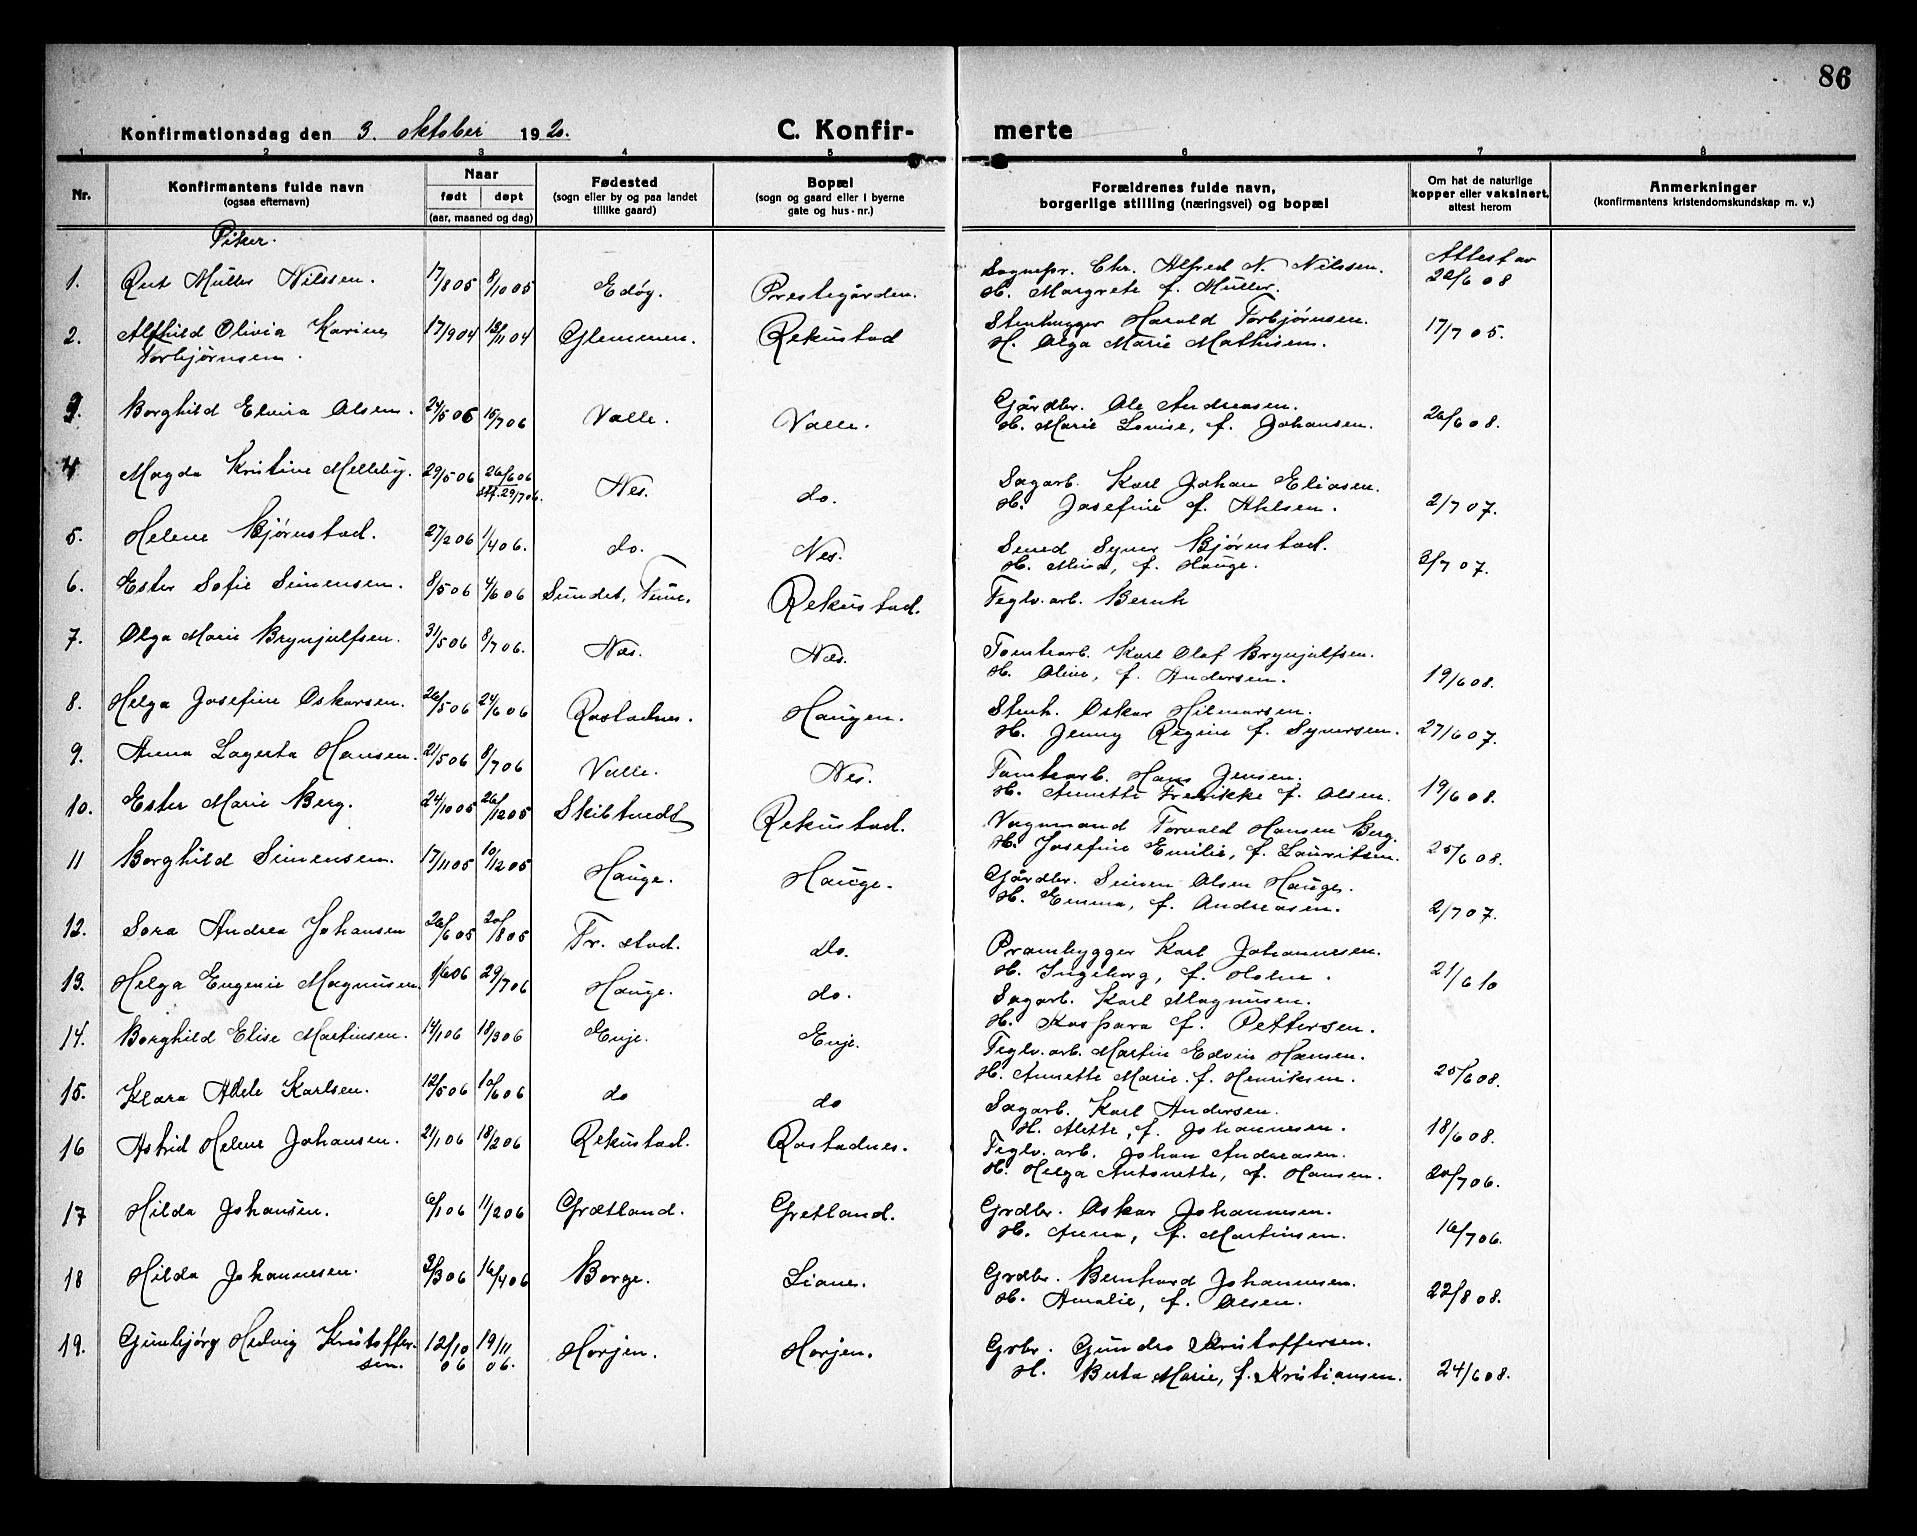 86
Konfirmationsdag den 3. oktober 1920.
C. Konfir-
merte
1 2 3 4 5 6 7 8
Nr.
Konfirmantens fulde navn
(ogsaa efternavn)
Naar
født døpt
(aar, maaned og dag)
Fødested
(sogn eller by og paa landet
tillike gaard)
Bopæl
(sogn og gaard eller i byerne
gate og hus-nr.)
Forældrenes fulde navn,
borgerlige stilling (næringsvei) og bopæl
Om hat de naturlige
kopper eller vaksinert,
attest herom
Anmerkninger
(konfirmantens kristendomskundskap m. v.)
Piker.
1. Rut Müller Nilssen. 17/8 05 8/10 05 Edøy. Prestegården. Sognepr. Chr. Alfred N. Nilssen. Attest av
H. Margrete f. Müller. 22/6 08
2. Alfhild Olivia Karine 17/9 04 13/11 04 Glemmen. Rekustad Stenhugger Harald Torbjørnsen. 17/7 05.
Torbjørnsen. H. Olga Marie Mathisen.
3. Borghild Elvira Olsen. 24/5 06 15/7 06 Valle. Valle. Gårdbr. Ole Andreasen. 26/6 08.
H. Marie Lovise, f. Johansen.
4 Magda Kristine Melleby. 29/5 06 26/6 06 Nes. do. Sagarb. Karl Johan Eliasen.
stf. 29/7 06. H. Josefine f. Ahlsen. 2/7 07.
5. Helene Bjørnstad. 27/2 06 1/4 06. do. Nes. Smed Syver Bjørnstad.
H. Mina, f. Hauge. 3/7 07.
6. Ester Sofie Simensen. 8/5 06 4/6 06 Sundet, Tune. Rekustad. Teglv. arb. Bernh
7. Olga Marie Brynjulfsen. 31/5 06 8/7 06. Næs. Næs. Tomtearb. Karl Olaf Brynjulfsen.
H. Oline, f. Andersen. 19/6 08.
8. Helga Josefine Oskarsen. 26/5 06 24/6 06 Rostadnes. Haugen. Stenh. Oskar Hilmarsen.
H. Jenny Regine f. Syversen. 27/6 07.
9. Anna Lagerta Hansen. 21/5 06 8/7 06 Valle. Nes. Tomtearb. Hans Jensen.
H. Annette Fredrikke f. Olsen. 19/6 08.
10. Ester Marie Berg. 24/10 05 26/12 05 Skibtvedt Rekustad. Vognmand Torvald Hansen Berg.
H. Josefine Emilie, f. Lauritsen. 25/6 08.
11 Borghild Simensen. 17/11 05 10/12 05 Hauge. Hauge. Gårdbr. Simen Olsen Hauge.
H. Emma, f. Andreasen. 2/7 07.
12. Sora Andrea Johansen 26/6 05 20/8 05 Fr. stad. do. Prambygger Karl Johannesen.
H. Ingeborg, f. Holm. 21/6 10
13. Helga Eugenie Magnusen. 1/6 06 29/7 06 Hauge. do. Sagarb. Karl Magnusen.
H. Kaspara f. Pettersen.
14. Borghild Elise Martinsen. 14/1 06 18/3 06 Enje. Enje. Teglv. arb. Martin Edvin Hansen.
H. Annette Marie. f. Henriksen. 25/6 08.
15. Klara Adele Karlsen. 12/5 06 10/6 06 do do Sagarb. Karl Andersen.
H. Alette, f. Johannesen. 18/6 08.
16 Astrid Helene Johansen. 21/1 06 18/2 06 Rekustad. Rostadnes. Teglv. arb. Johan Andreasen.
H. Helga Antonette, f. Hansen. 20/7 06.
17 Hilda Johansen. 6/1 06 11/2 06 Grætland. Gretland. Grdbr. Oskar Johannesen.
H. Anna, f. Martinsen. 16/7 06.
18 Hilda Johannesen. 3/3 06 16/4 06 Borge. Lianes. Grdbr. Bernhard Johannesen.
H. Amalie, f. Olsen. 22/8 08.
19. Gunbjørg Hedvig Kristoffer- 12/10 19/11 Horjen. Horjen. Grbr. Gundro Kristoffersen.
sen. 06 06. H. Berta Marie, f. Kristiansen. 24/6 08.